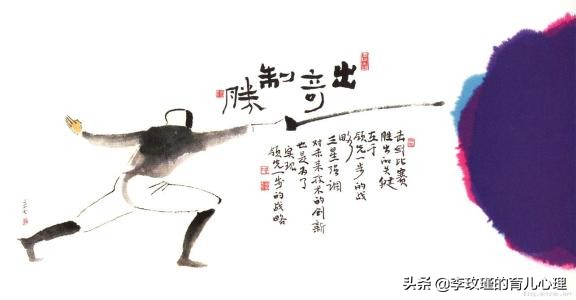 出奇制勝
击剑比赛
胜出的关键
在于
领先一步的战
略
三星强调
对未来技术的创新
也是为了
实现
领先一步的战略
头条 @李玫瑾的育儿心理